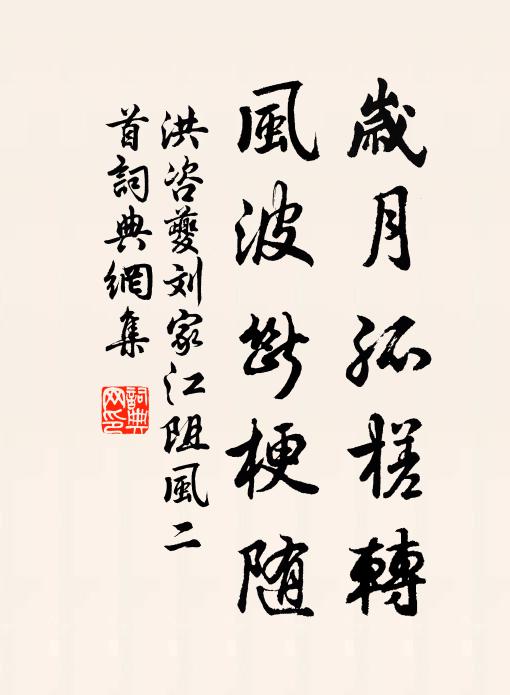 歲月孤槎轉
風波斷梗隨
洪咨夔刘家江阻風二
首詞典網集
詞典
网印